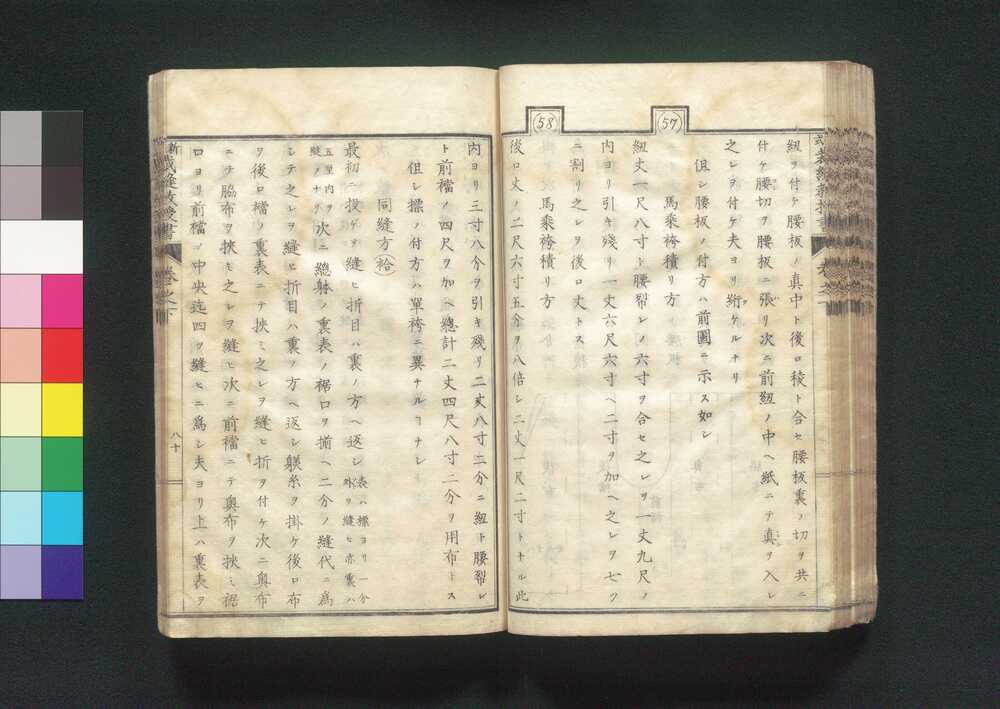 57
58
紐ヲ付ケ腰板ノ真中ト後ロ稜ト合セ腰板裏ノ切ヲ共ニ
付ケ腰切ヲ腰板ニ張リ次ニ前紐ノ中ヘ紙ニテ真ヲ入レ
之レヲ付ケ夫ヨリ絎ケルナリ
但シ腰板ノ付方ハ前圖ニ示ス如シ
馬乗袴積リ方
紐丈一尺八寸ト腰裂レノ六寸ヲ合セ之レヲ一丈九尺ノ
内ヨリ引キ残リ一丈六尺六寸ヘ二寸ヲ加ヘ之レヲ七ツ
ニ割リ之レヲ後ロ丈トス
馬乗袴積リ方
後ロ丈ノ二尺六寸五分ヲ八倍シ二丈一尺二寸トナル此
内ヨリ三寸八分ヲ引キ残リ二丈八寸二分ニ紐ト腰裂レ
ト前襠ノ四尺ヲ加ヘ總計二丈四尺八寸二分ヲ用布トス
但シ標ノ付方ハ單袴ニ異ナルコナシ
同縫方 袷
最初ニ投ゲヲ縫ヒ折目ハ裏ノ方ヘ返シ表ハ標ヨリ一分
外ヲ縫ヒ亦裏ハ
五厘内ヲ
縫フナリ次ニ總躰ノ裏表ノ裾口ヲ揃ヘ二分ノ縫代ニ爲
シテ之レヲ縫ヒ折目ハ裏ノ方ヘ返シ躾糸ヲ掛ケ後ロ布
ヲ後ロ襠ノ裏表ニテ挾ミ之レヲ縫ヒ折ヲ付ケ次ニ奥布
ニテ脇布ヲ挾ミ之レヲ縫ヒ次ニ前襠ニテ奥布ヲ挾ミ裾
口ヨリ前襠ノ中央迄四ツ縫ヒニ爲シ夫ヨリ上ハ裏表ヲ
新式裁縫教授書 卷之下
八十